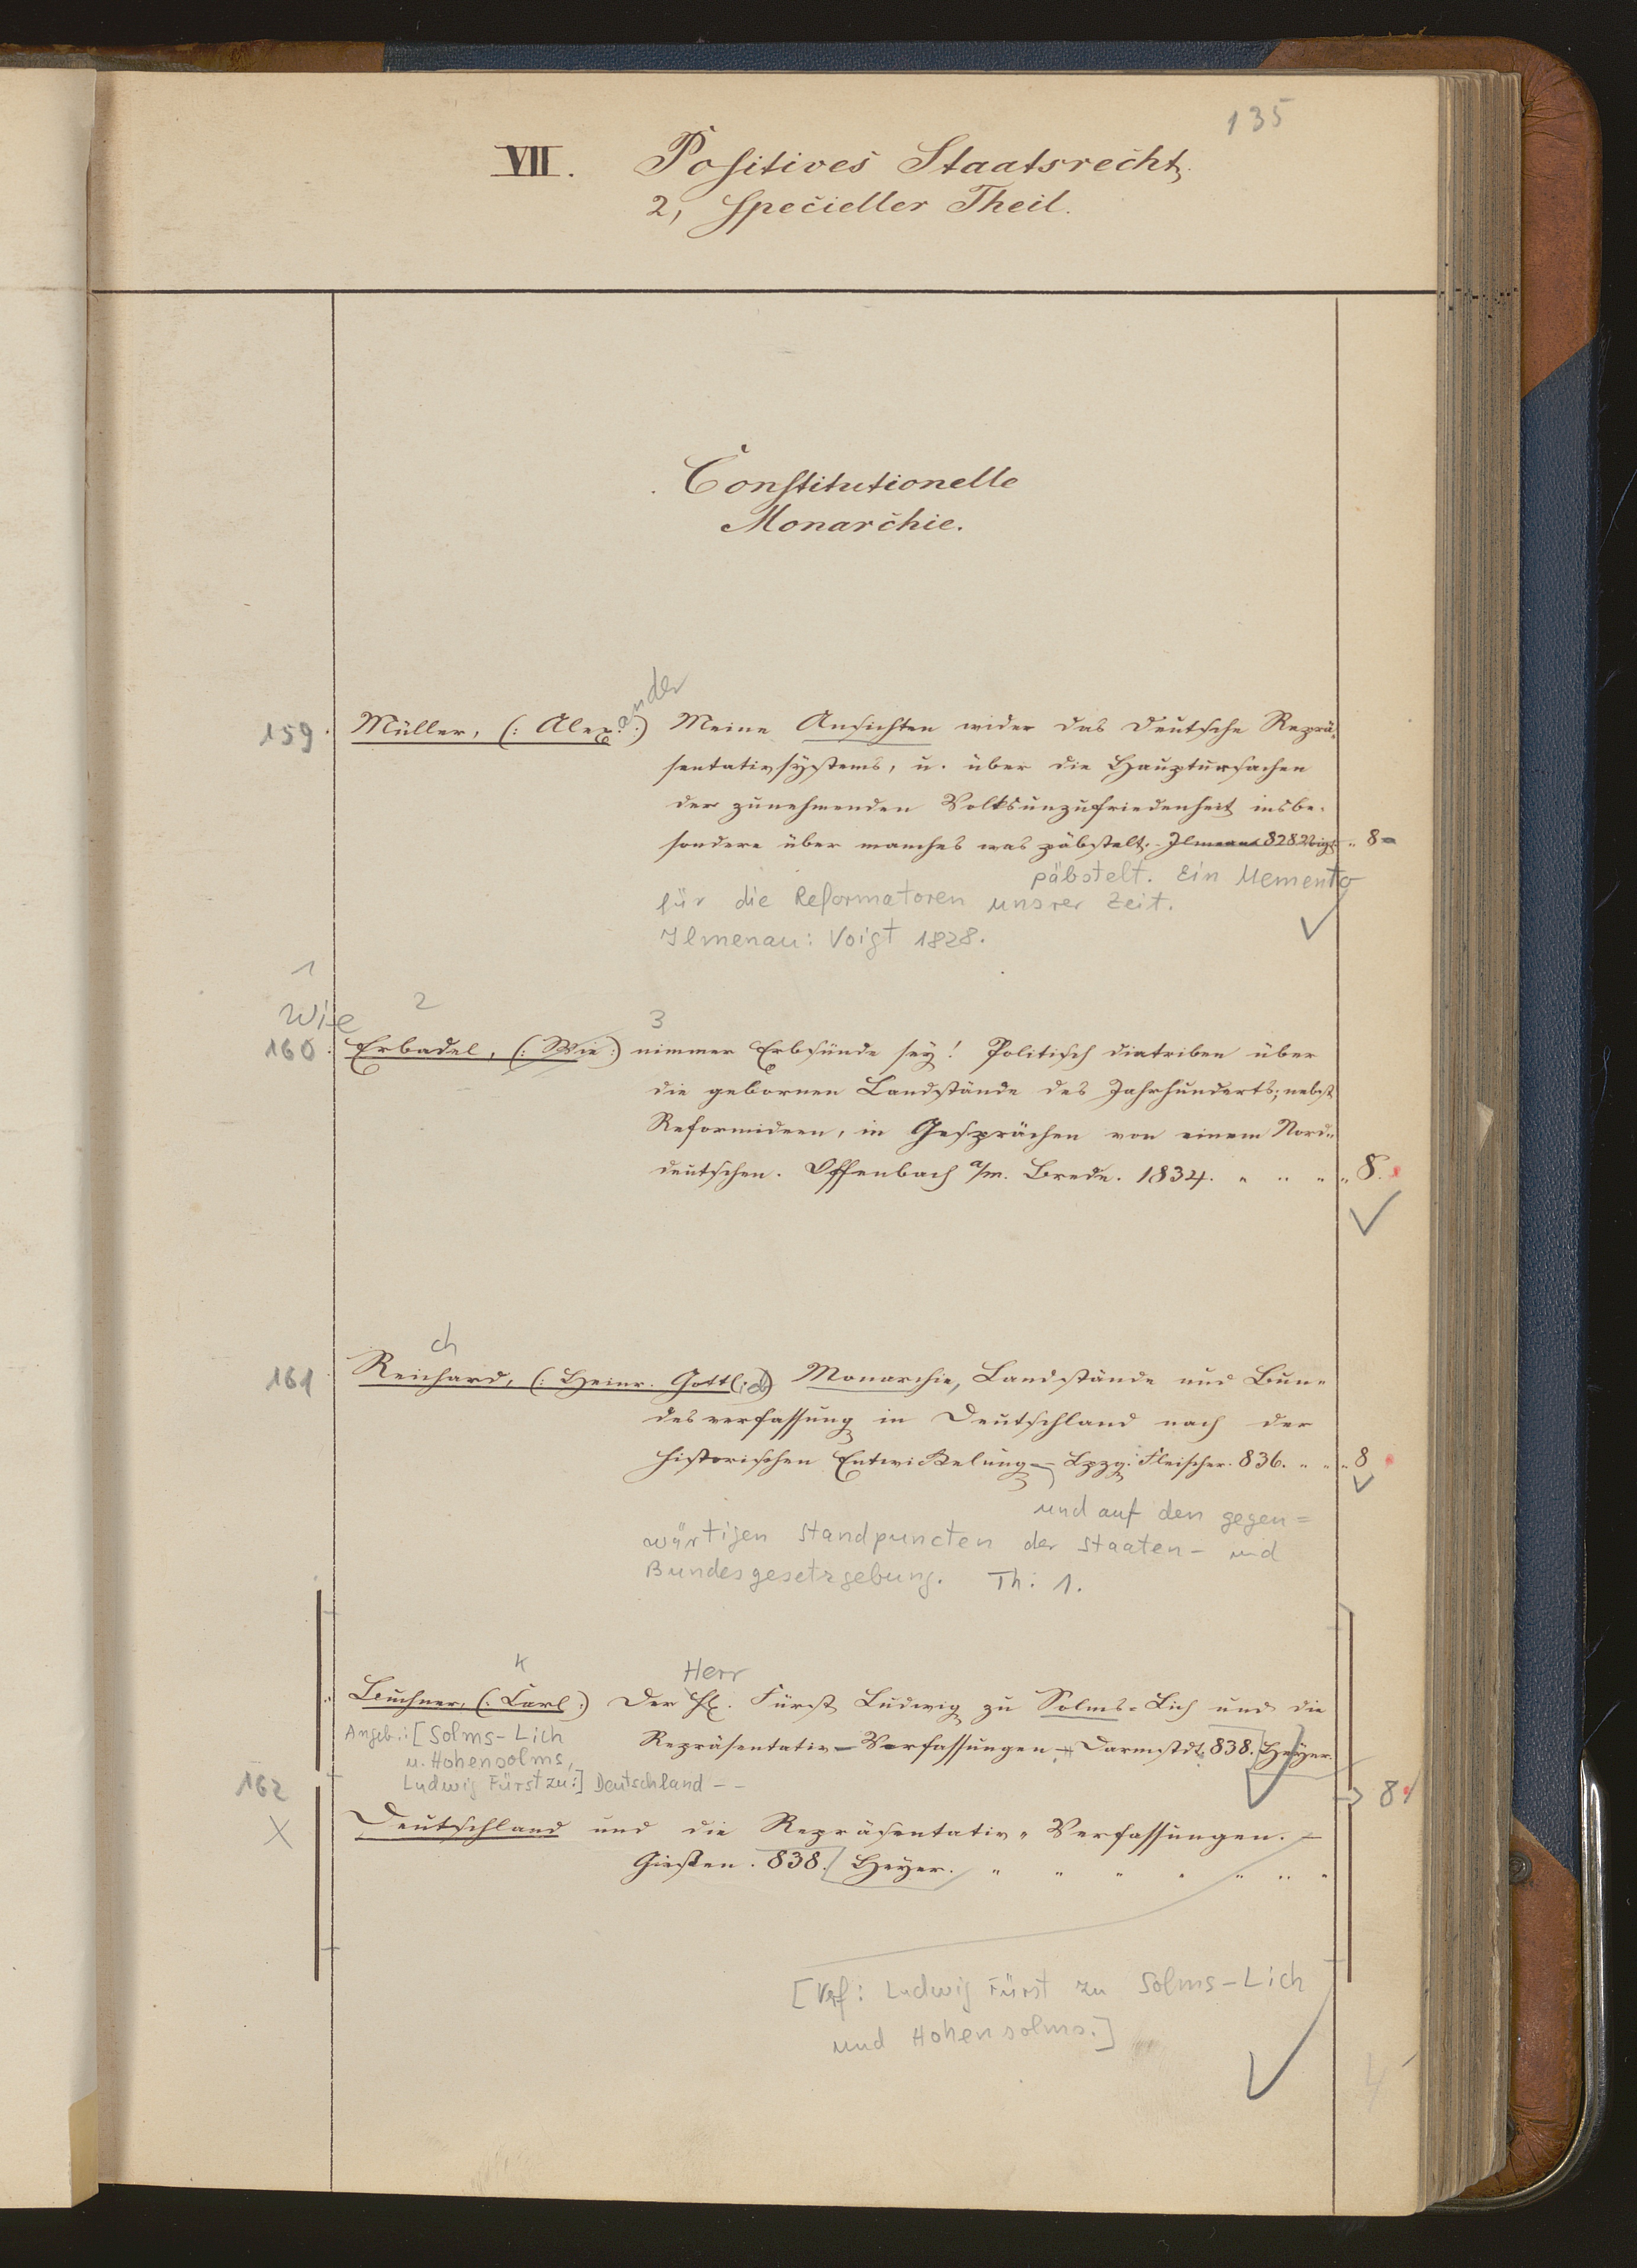 135
VII. Positives Staatsrecht
2, Specieller Theil.
Constitutionelle
Monarchie.
ander
159. Müller, (: Alex. :) Meine Ansichten wider das deutsche Reprä-
sentativsystems, u. über die Hauptursachen
der zunehmenden Volksunzufriedenheit insbe-
sondere über manches was päbstelt. Ilmenau 828 Voigt „ 8
päbstelt. Ein Memento
für die Reformatoren unsrer Zeit.
Ilmenau: Voigt 1828.
1
Wie 2 3
160. Erbadel, (: Wie :) nimmer Erbsünde sey! Politisch diatriben über
die gebornen Landstände des Jahrhunderts; nebst
Reformideen, in Gesprächen von einem Nord-
deutschen. Offenbach a/m. Brede. 1834. „ „ „ „ 8.
ch
161 Reichard, (: Heinr. Gottl:) Monarchie, Landstände und Bun-
desverfassung in Deutschland nach der
historischen Entwickelung – Lpzg. Fleischer. 836. „ „ „ 8
und auf den gegen=
wärtigen Standpuncten der Staaten- und
Bundesgesetzgebung. Th. 1.
K Herr
Buchner, (: Carl :) Der H. Fürst Ludwig zu Solms-Lich und die
Repräsentativ-Verfassungen – Darmstdt. 838. Heyer.
Angeb.: [Solms-Lich
u. Hohensolms,
Ludwig Fürst zu:] Deutschland - -
162 8
X Deutschland und die Repräsentativ-Verfassungen. –
Gießen. 838. Heyer. „ „ „ „ „ „ „
[Verf: Ludwig Fürst zu Solms-Lich
und Hohensolms.]
4